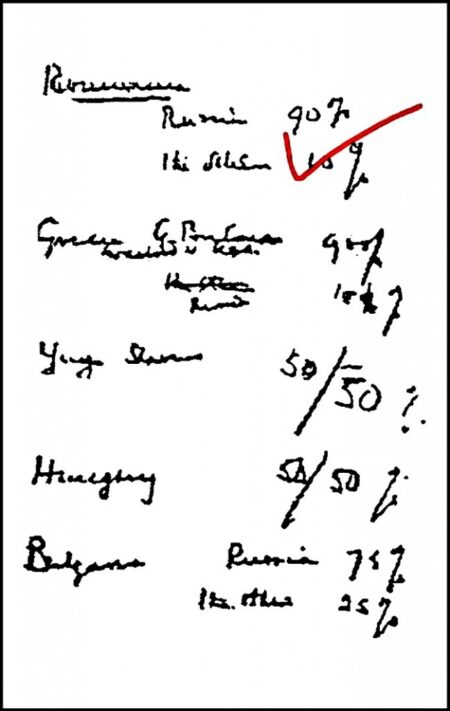 Roumania
Russia 90%
The others 10%
Greece G. Britain 90%
(in accord with USA)
Russia 10%
Yugoslavia 50/50 %
Hungary 50/50 %
Bulgaria Russia 75%
The others 25%